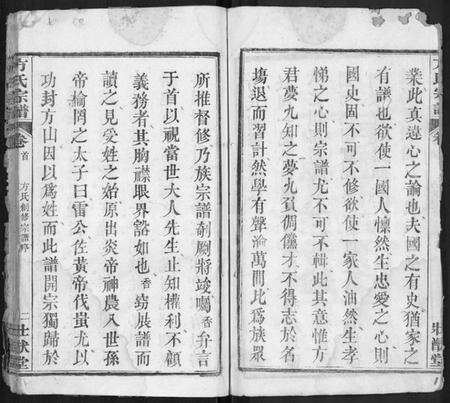 業此真遠心之論也夫國之有史猶家之
有譜也欲使一國人懍然生忠愛之心則
國史固不可不修欲使一家人油然生孝
悌之心則宗譜尤不可不輯此其意惟方
君夢九知之夢九負倜儻才不得志於名
塲退而習計然學有聲滄萬間比爲族衆
方氏宗譜
壯猷堂
所推督修乃族宗譜剞劂將竣囑香弁言
于首以視當世大人先生止知權利不顧
義務者其胸襟眼界豁如也香竊展譜而
讀之見受姓之始原出炎帝神農八世孫
帝榆罔之太子曰雷公佐黃帝伐蚩尤以
功封方山因以爲姓而此譜開宗獨歸於
方氏宗譜
卷首
方氏創修宗譜序
二
壯猷堂